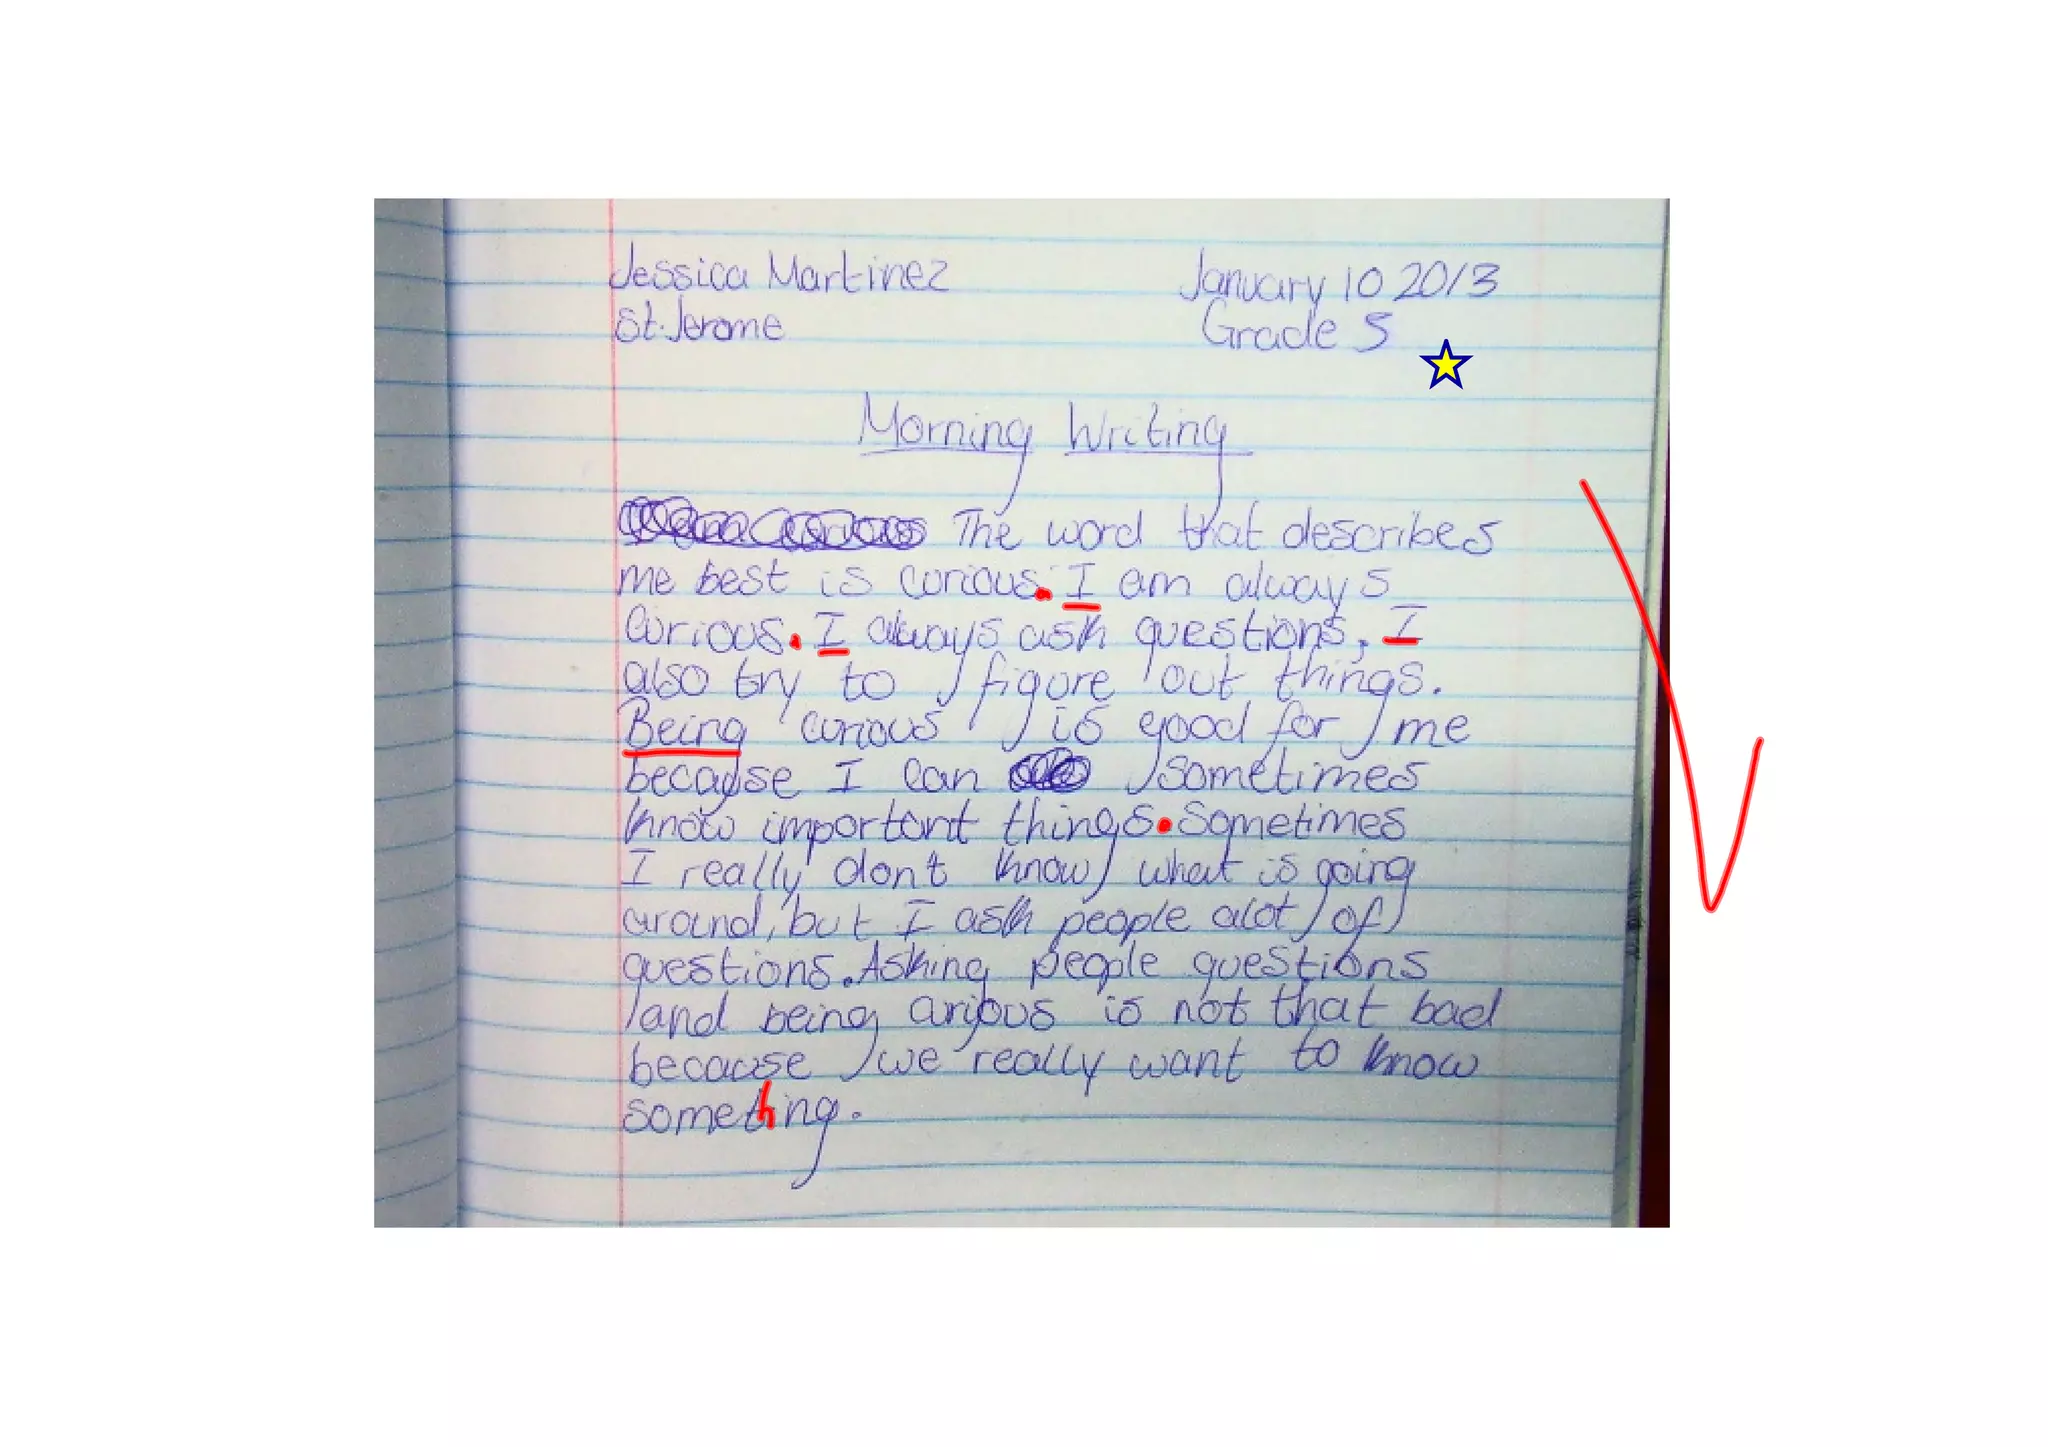 Jessica Martinez January 10 2013
St. Jerome Grade 5
Morning Writing
The word that describes
me best is curious. I am always
curious. I always ask questions, I
also try to figure out things.
Being curious is good for me
because I can sometimes
know important things. Sometimes
I really dont know what is going
around, but I ask people alot of
questions. Asking people questions
and being curious is not that bad
because we really want to know
something.